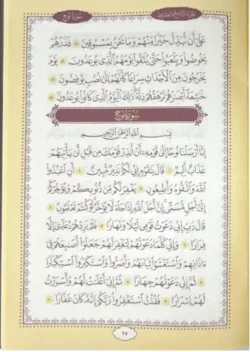 عَلَىٰ أَن نُّبَدِّلَ خَيْرًا مِّنْهُمْ وَمَا نَحْنُ بِمَسْبُوقِينَ ٤١ فَذَرْهُمْ
يَخُوضُوا وَيَلْعَبُوا حَتَّىٰ يُلَاقُوا يَوْمَهُمُ الَّذِي يُوعَدُونَ ٤٢ يَوْمَ
يَخْرُجُونَ مِنَ الْأَجْدَاثِ سِرَاعًا كَأَنَّهُمْ إِلَىٰ نُصُبٍ يُوفِضُونَ ٤٣
خَاشِعَةً أَبْصَارُهُمْ تَرْهَقُهُمْ ذِلَّةٌ ذَٰلِكَ الْيَوْمُ الَّذِي كَانُوا يُوعَدُونَ ٤٤
سُورَةُ نُوحٍ
بِسْمِ اللَّهِ الرَّحْمَٰنِ الرَّحِيمِ
إِنَّا أَرْسَلْنَا نُوحًا إِلَىٰ قَوْمِهِ أَنْ أَنذِرْ قَوْمَكَ مِن قَبْلِ أَن يَأْتِيَهُمْ
عَذَابٌ أَلِيمٌ ١ قَالَ يَا قَوْمِ إِنِّي لَكُمْ نَذِيرٌ مُّبِينٌ ٢ أَنِ اعْبُدُوا
اللَّهَ وَاتَّقُوهُ وَأَطِيعُونِ ٣ يَغْفِرْ لَكُم مِّن ذُنُوبِكُمْ وَيُؤَخِّرْكُمْ
إِلَىٰ أَجَلٍ مُّسَمًّى إِنَّ أَجَلَ اللَّهِ إِذَا جَاءَ لَا يُؤَخَّرُ لَوْ كُنتُمْ تَعْلَمُونَ ٤
قَالَ رَبِّ إِنِّي دَعَوْتُ قَوْمِي لَيْلًا وَنَهَارًا ٥ فَلَمْ يَزِدْهُمْ دُعَائِي إِلَّا
فِرَارًا ٦ وَإِنِّي كُلَّمَا دَعَوْتُهُمْ لِتَغْفِرَ لَهُمْ جَعَلُوا أَصَابِعَهُمْ فِي
آذَانِهِمْ وَاسْتَغْشَوْا ثِيَابَهُمْ وَأَصَرُّوا وَاسْتَكْبَرُوا اسْتِكْبَارًا
٧ ثُمَّ إِنِّي دَعَوْتُهُمْ جِهَارًا ٨ ثُمَّ إِنِّي أَعْلَنتُ لَهُمْ وَأَسْرَرْتُ
لَهُمْ إِسْرَارًا ٩ فَقُلْتُ اسْتَغْفِرُوا رَبَّكُمْ إِنَّهُ كَانَ غَفَّارًا ١٠